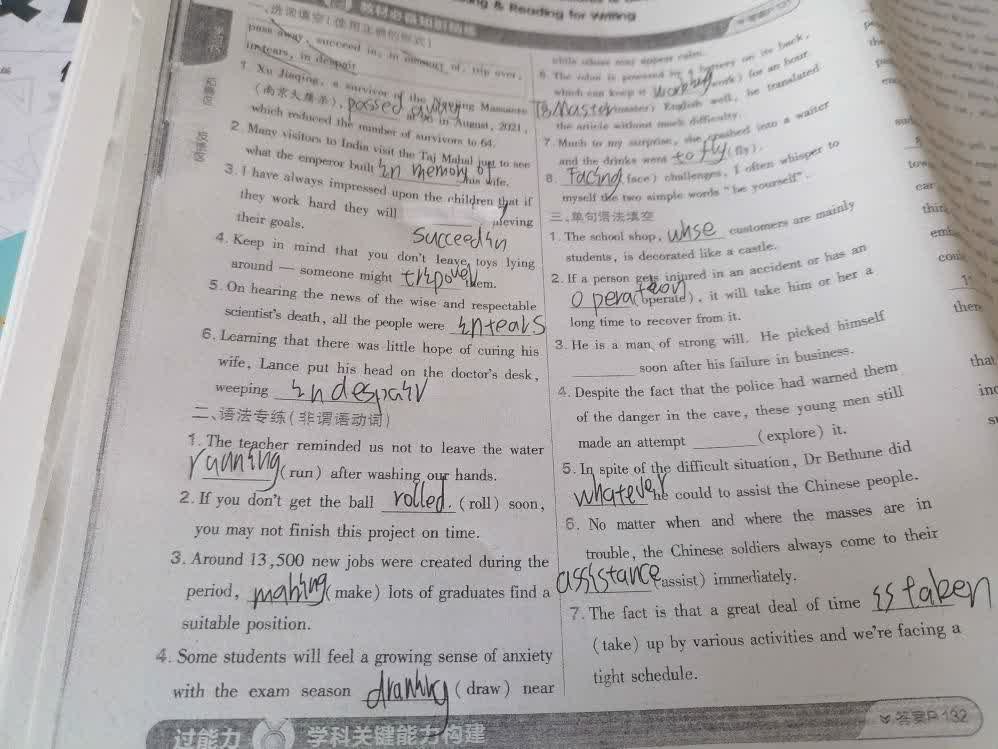 & Reading for Writing
一、选词填空(使用正确的形式)
pass away, succeed in, in memory of, trip over,
in tears, in despair
1. Xu Jiaqing, a survivor of the Nanjing Massacre
(南京大屠杀), passed away at 96 in August, 2021,
which reduced the number of survivors to 64.
2. Many visitors to India visit the Taj Mahal just to see
what the emperor built in memory of his wife.
3. I have always impressed upon the children that if
they work hard they will succeed in achieving
their goals.
4. Keep in mind that you don't leave toys lying
around — someone might trip over them.
5. On hearing the news of the wise and respectable
scientist's death, all the people were in tears
6. Learning that there was little hope of curing his
wife, Lance put his head on the doctor's desk,
weeping in despair
二、语法专练(非谓语动词)
1. The teacher reminded us not to leave the water
running (run) after washing our hands.
2. If you don't get the ball rolled. (roll) soon,
you may not finish this project on time.
3. Around 13,500 new jobs were created during the
period, making (make) lots of graduates find a
suitable position.
4. Some students will feel a growing sense of anxiety
with the exam season (draw) near
which can keep it working (work) for an hour.
To Master (master) English well, he translated
the article without much difficulty.
7. Much to my surprise, she crashed into a waiter
and the drinks went to fly (fly).
8. Facing (face) challenges, I often whisper to
myself the two simple words "be yourself".
三、单句语法填空
1. The school shop, whse customers are mainly
students, is decorated like a castle.
2. If a person gets injured in an accident or has an
operation (operate), it will take him or her a
long time to recover from it.
3. He is a man of strong will. He picked himself
soon after his failure in business.
4. Despite the fact that the police had warned them
of the danger in the cave, these young men still
made an attempt (explore) it.
5. In spite of the difficult situation, Dr Bethune did
whatever he could to assist the Chinese people.
6. No matter when and where the masses are in
trouble, the Chinese soldiers always come to their
assistance (assist) immediately.
7. The fact is that a great deal of time is taken
(take) up by various activities and we're facing a
tight schedule.
答案P132
过能力 学科关键能力构建